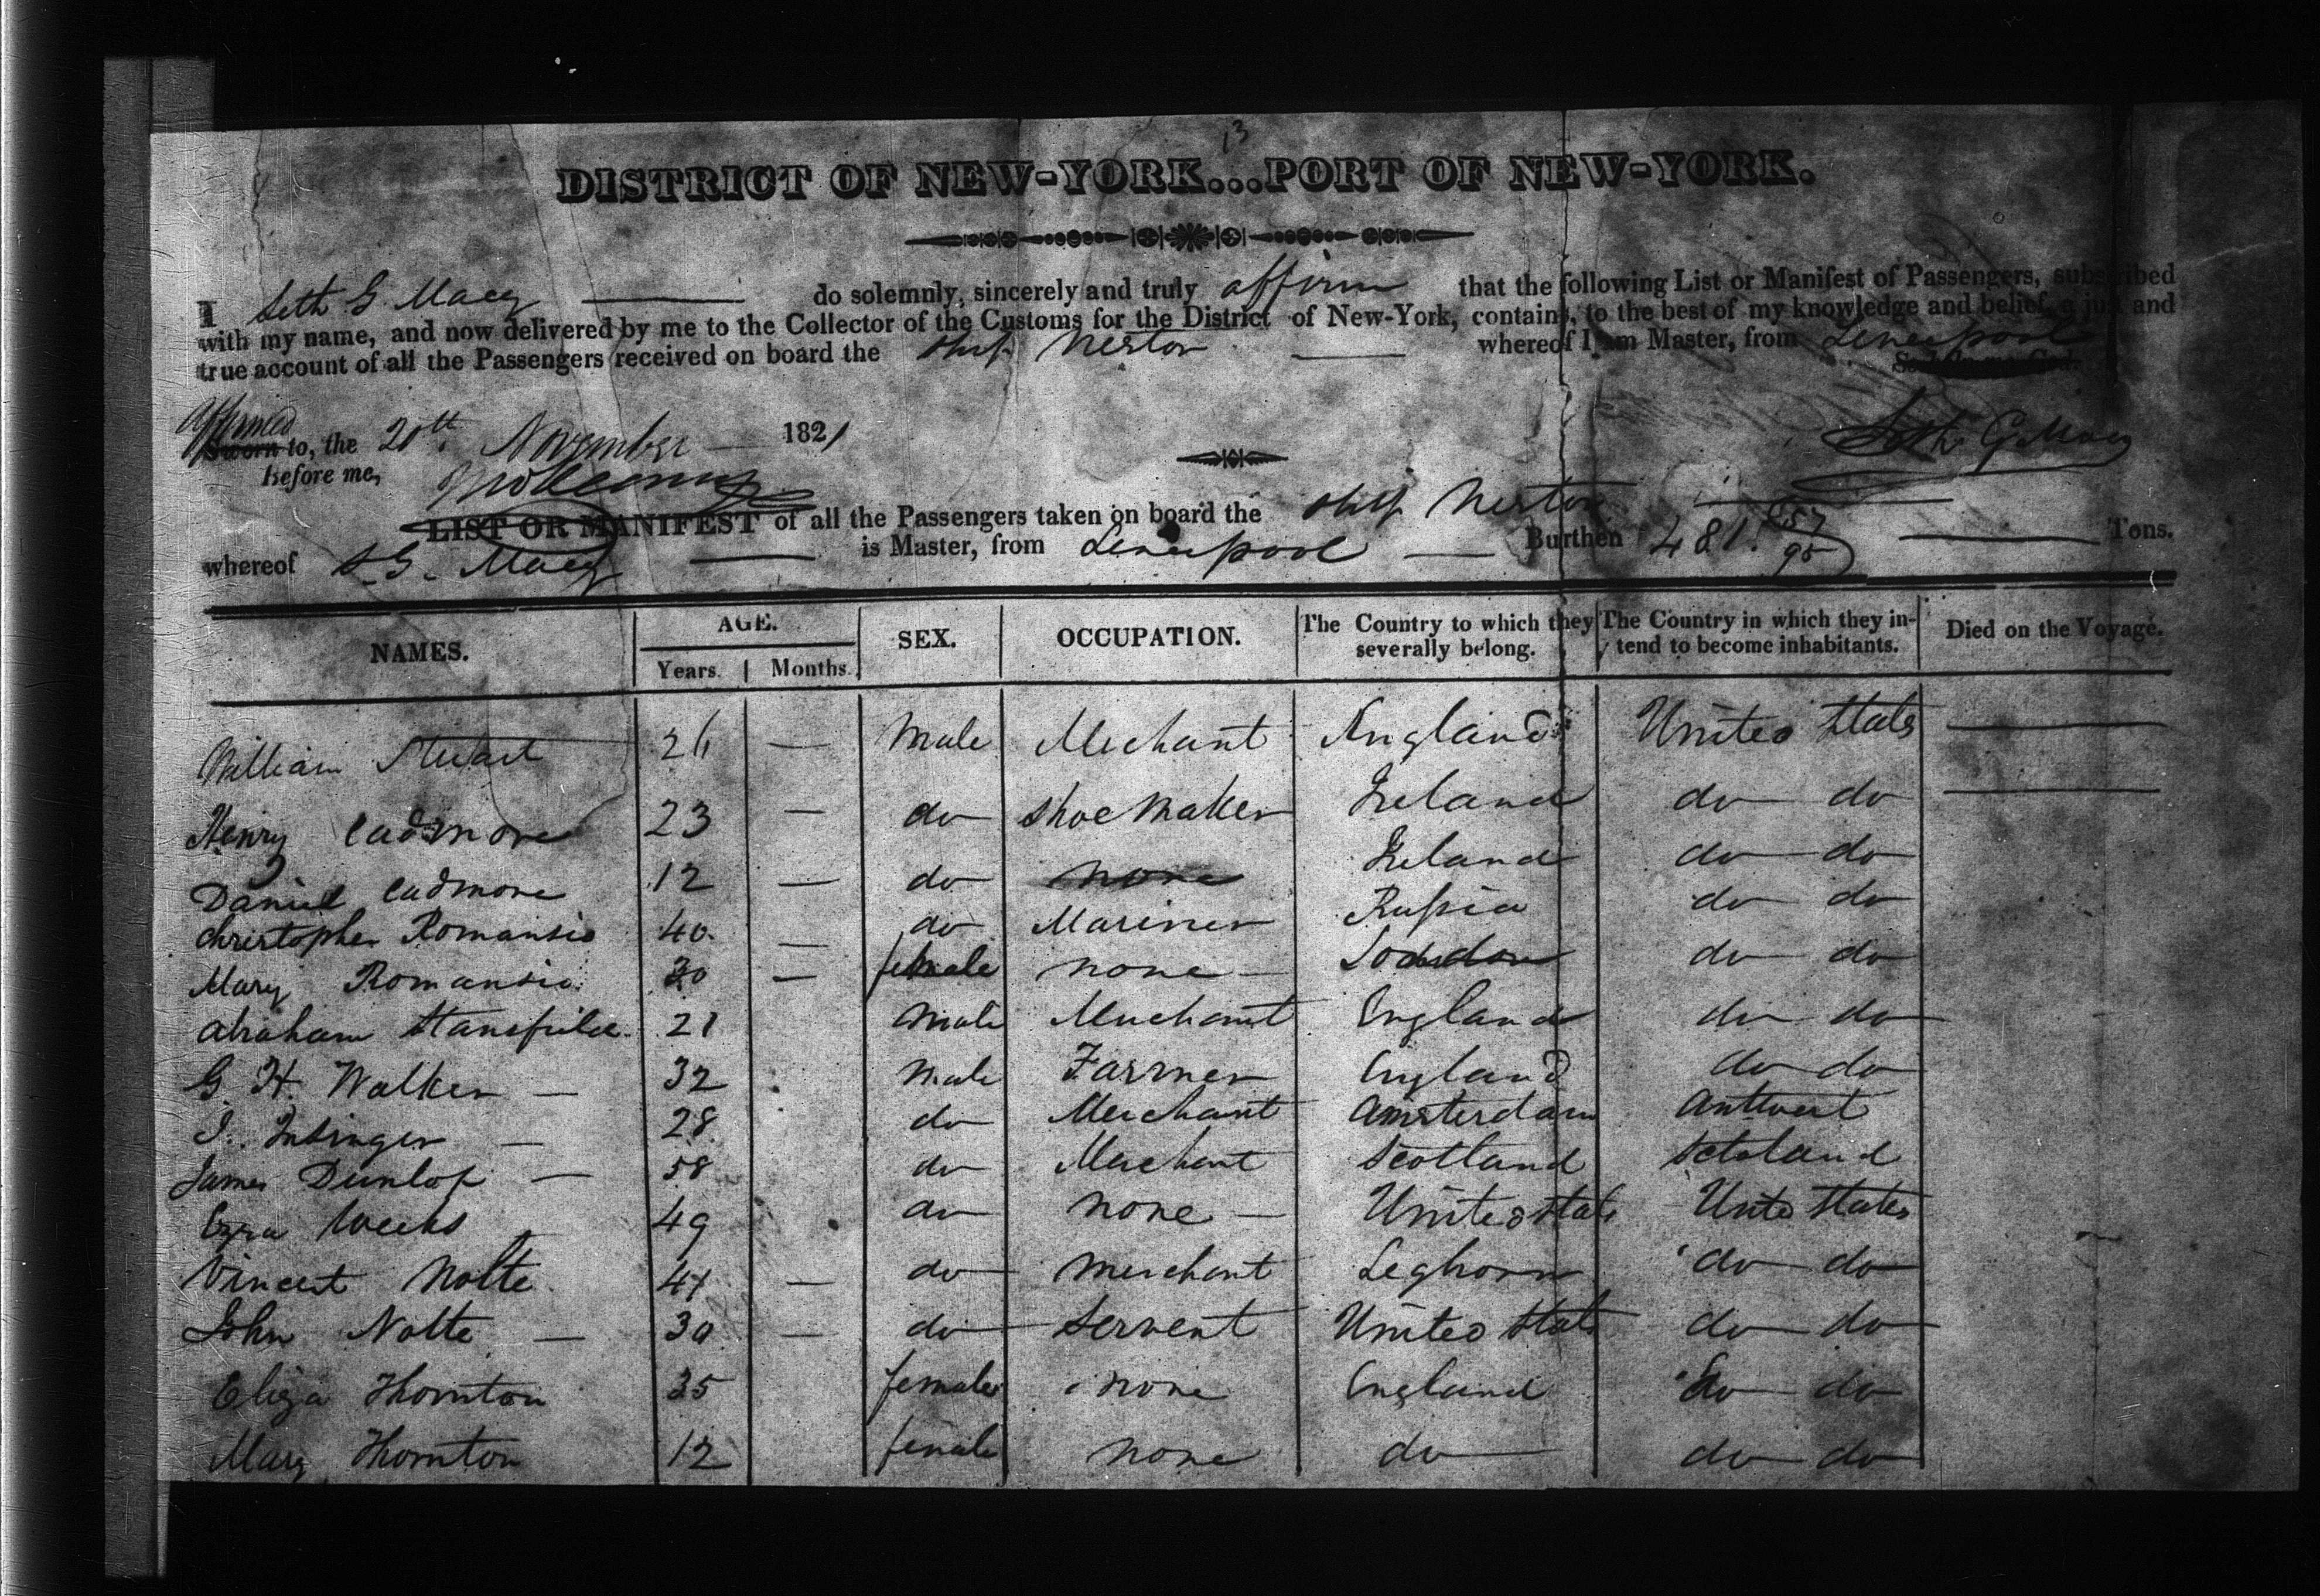 13
DISTRICT OF NEW-YORK...PORT OF NEW-YORK.
I Seth G Macy do solemnly, sincerely and truly affirm that the following List or Manifest of Passengers, subscribed
with my name, and now delivered by me to the Collector of the Customs for the District of New-York, contains, to the best of my knowledge and belief, a just and
true account of all the Passengers received on board the Ship Nestor whereof I am Master, from Liverpool
Affirmed
Sworn to, the 20th November 1821
Before me,
Seth G Macy
LIST OR MANIFEST of all the Passengers taken on board the Ship Nestor
whereof S. G. Macy is Master, from Liverpool Burthen 481. 57/95 Tons.
NAMES. AGE. SEX. OCCUPATION. The Country to which they severally belong. The Country in which they intend to become inhabitants. Died on the Voyage.
Years. Months.
William Stewart 26 — Male Merchant England United States
Henry Cadmore 23 — do Shoe Maker Ireland do do
Daniel Cadmore 12 — do none Ireland do do
Christopher Romansio 40 — do Mariner Russia do do
Mary Romansio 30 — female none — London do do
Abraham Stansfield 21 Male Merchant England do do
G. H. Walker — 32 Male Farmer England do do
I. Insinger — 28 do Merchant Amsterdam Anttwert
James Dunlop — 58 do Merchant Scotland Scotland
Ezra Weeks 49 do none — United States Unite States
Vincent Nolte 41 — do Merchant Leghorn do do
John Nolte — 30 — do Servent United States do do
Eliza Thornton 35 female none England do do
Mary Thornton 12 female none do do do